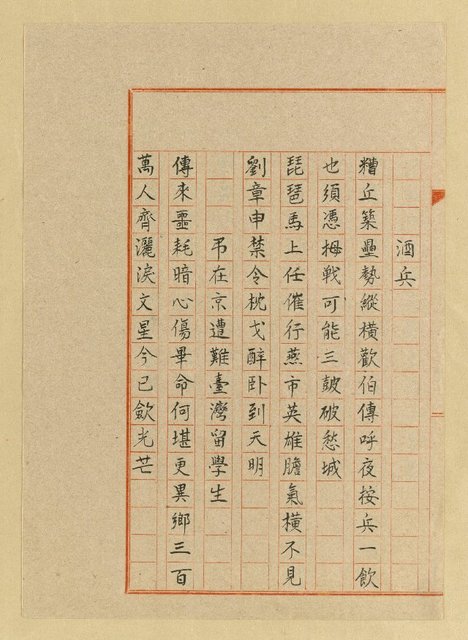 酒兵
糟丘築壘勢縱橫歡伯傳呼夜按兵一飲
也須憑拇戰可能三鼓破愁城
琵琶馬上任催行燕市英雄膽氣橫不見
劉章申禁令枕戈醉卧到天明
弔在京遭難臺灣留學生
傳來噩耗暗心傷畢命何堪更異鄉三百
萬人齊灑淚文星今已歛光芒